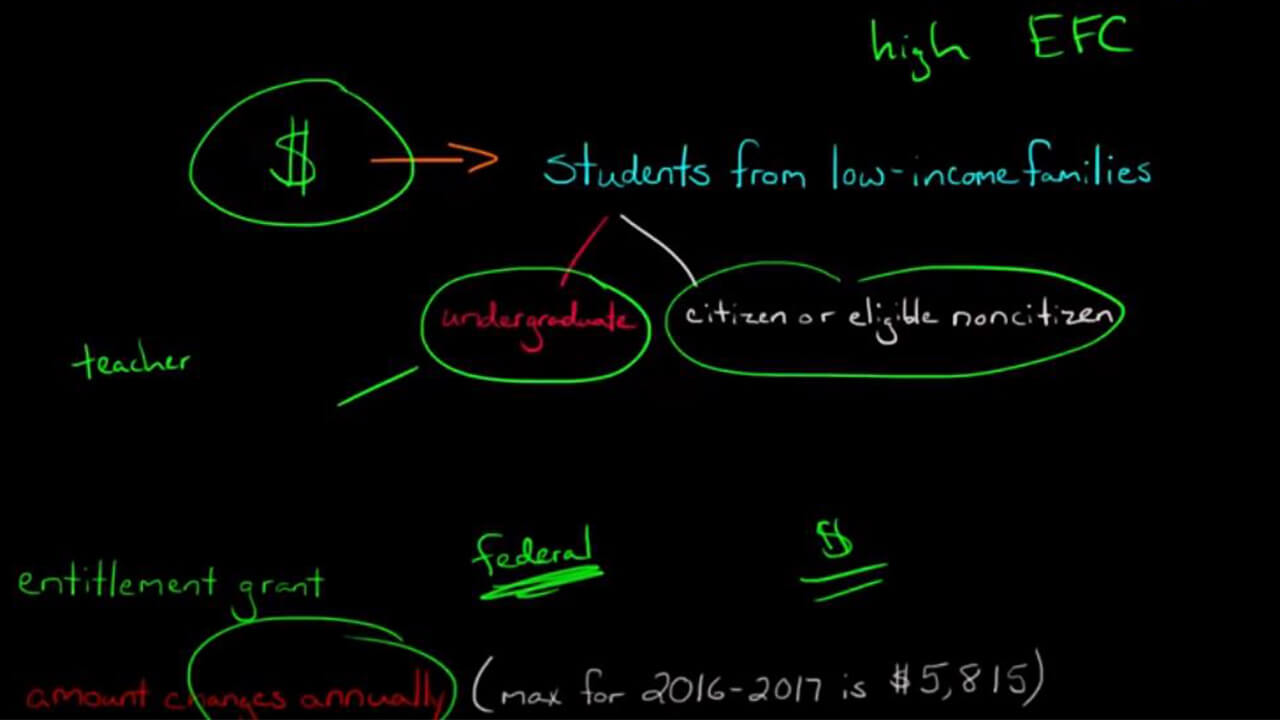 high EFC
$
Students from low-income families
undergraduate
citizen or eligible noncitizen
teacher
federal
$
entitlement grant
amount changes annually (max for 2016-2017 is $5,815)